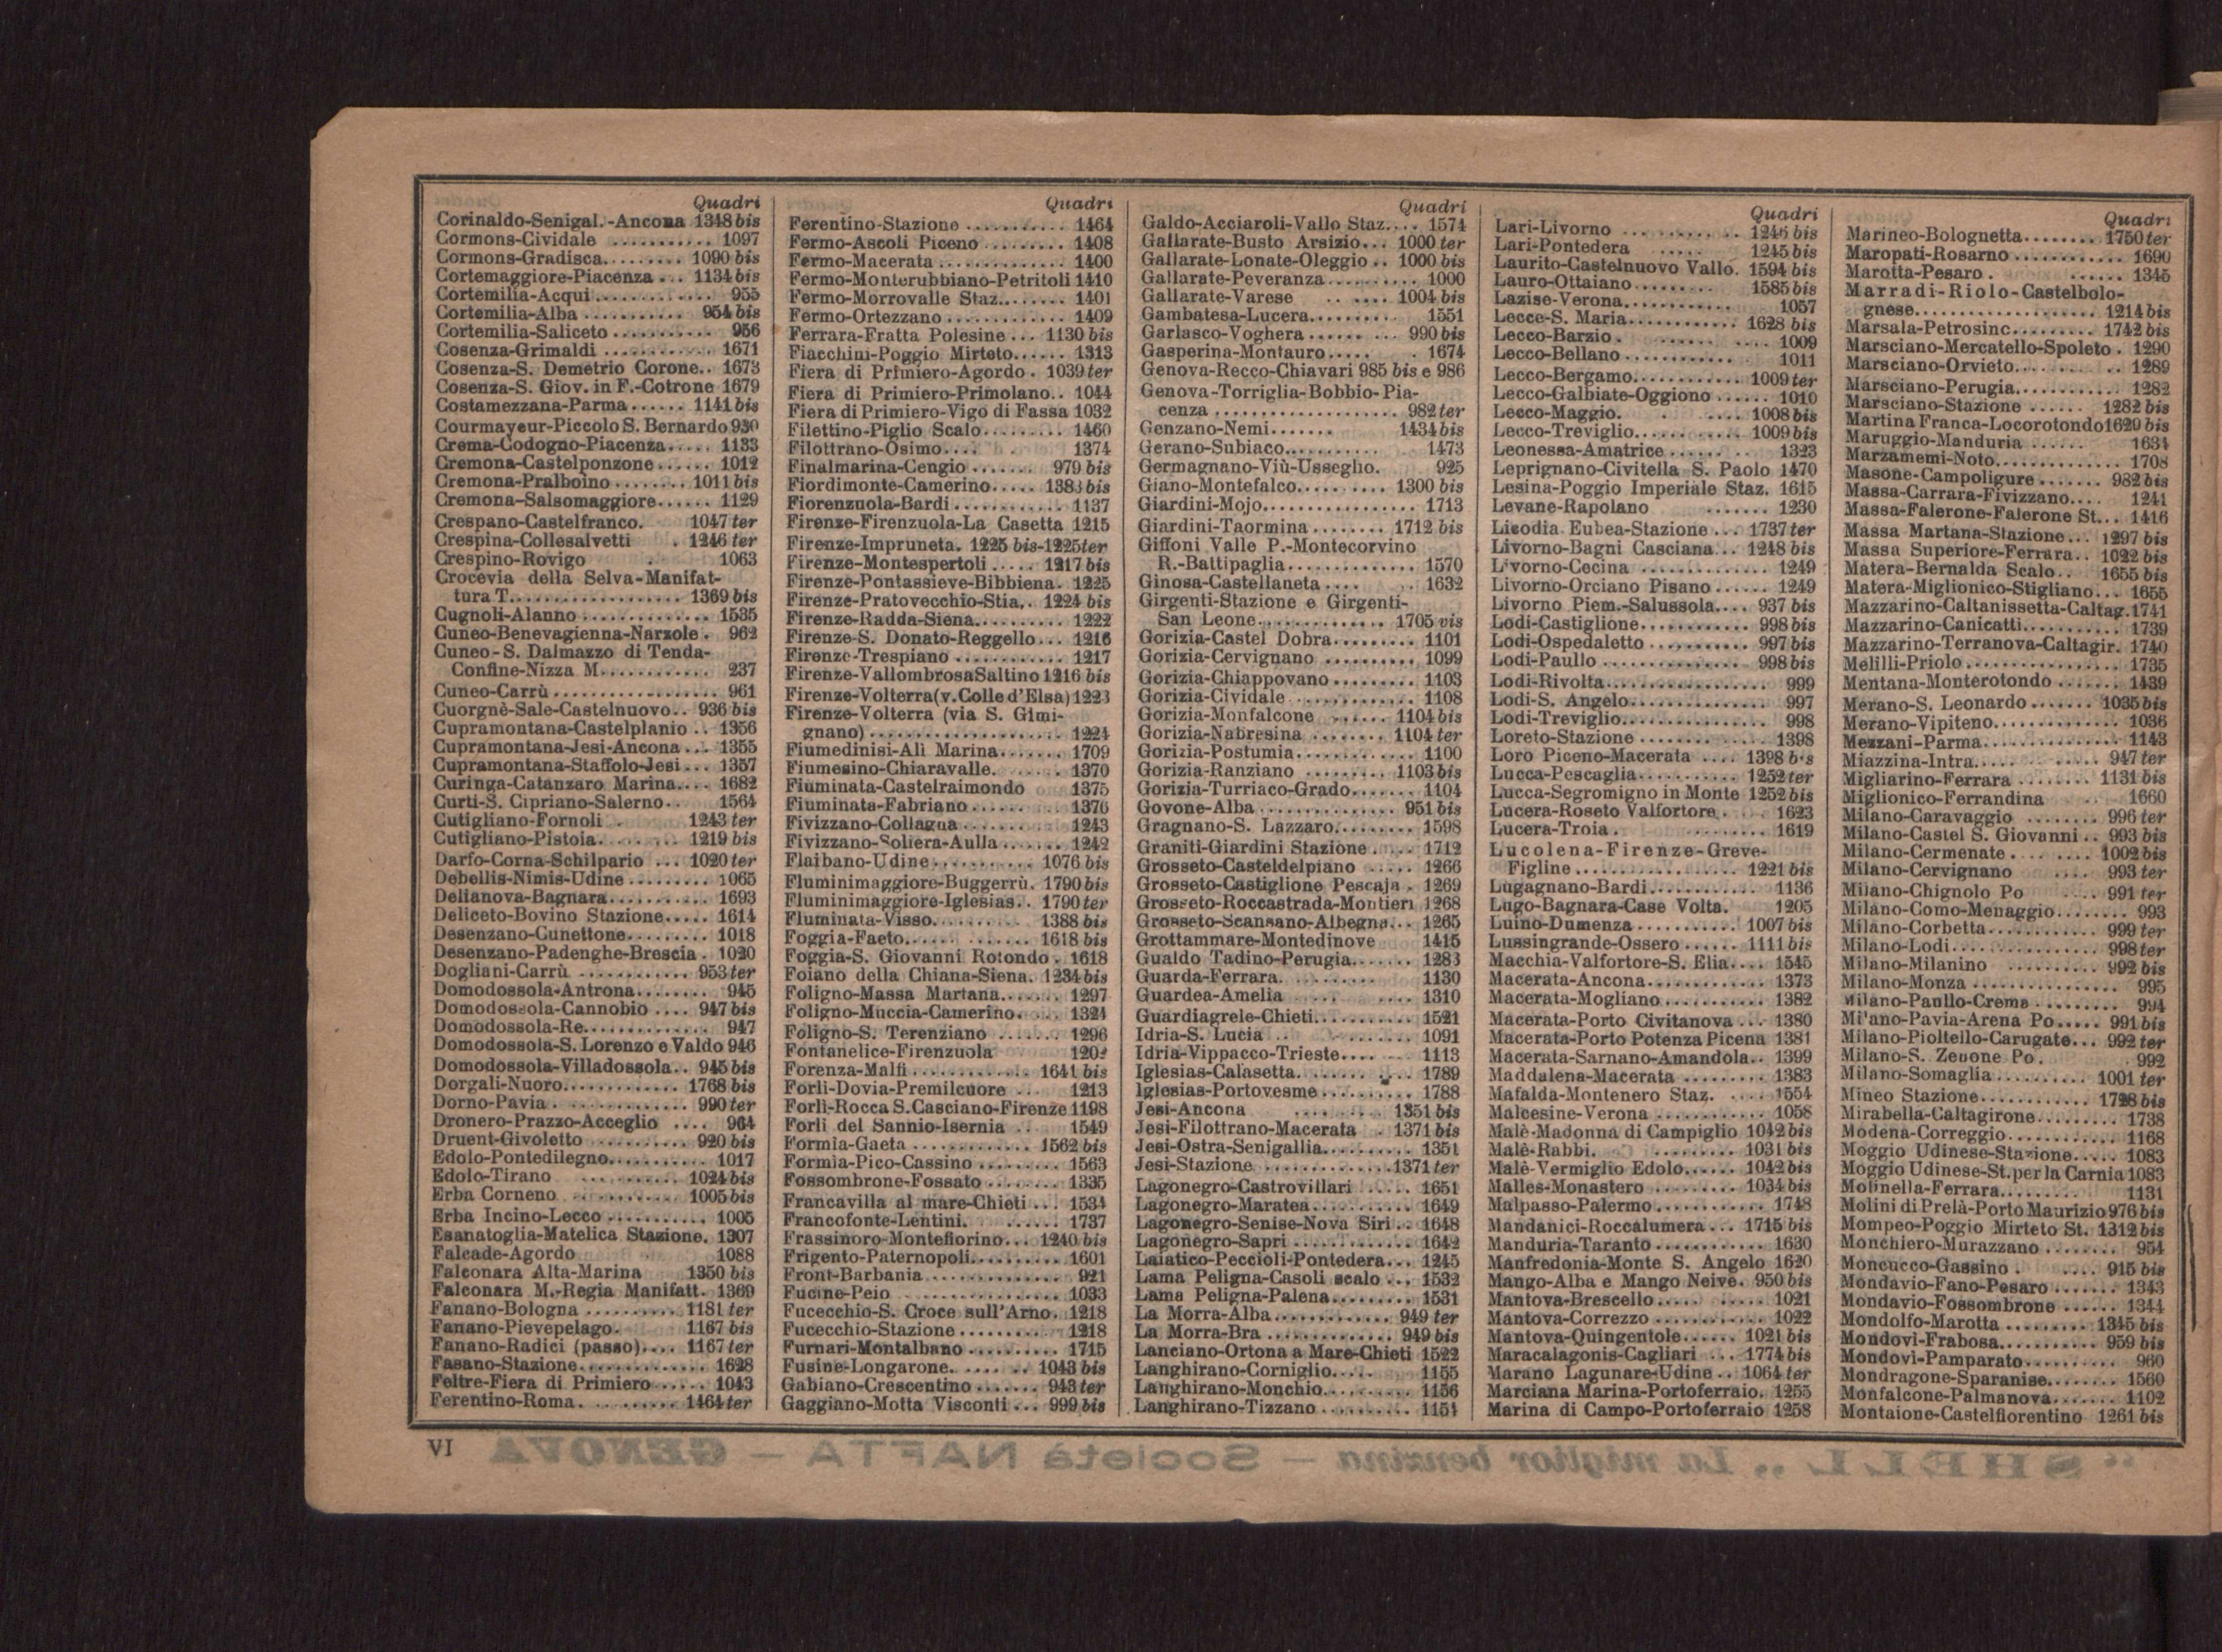 Quadri
Corinaldo-Senigal.-Ancona 1348 bis
Cormons-Cividale ........... 1097
Cormons-Gradisca......... 1090 bis
Cortemaggiore-Piacenza ... 1134 bis
Cortemilia-Acqui ............. 955
Cortemilia-Alba ........... 954 bis
Cortemilia-Saliceto ........... 956
Cosenza-Grimaldi ............ 1671
Cosenza-S. Demetrio Corone.. 1673
Cosenza-S. Giov. in F.-Cotrone 1679
Costamezzana-Parma ...... 1141 bis
Courmayeur-Piccolo S. Bernardo 930
Crema-Codogno-Piacenza..... 1133
Cremona-Castelponzone ...... 1012
Cremona-Pralboino ........ 1011 bis
Cremona-Salsomaggiore...... 1129
Crespano-Castelfranco. 1047 ter
Crespina-Collesalvetti . 1246 ter
Crespino-Rovigo 1063
Crocevia della Selva-Manifat-
tura T................... 1369 bis
Cugnoli-Alanno .............. 1535
Cuneo-Benevagienna-Narzole . 962
Cuneo-S. Dalmazzo di Tenda-
Confine-Nizza M............ 237
Cuneo-Carrù ................. 961
Cuorgnè-Sale-Castelnuovo.. 936 bis
Cupramontana-Castelplanio .. 1356
Cupramontana-Jesi-Ancona ... 1355
Cupramontana-Staffolo-Jesi ... 1357
Curinga-Catanzaro Marina.... 1682
Curti-S. Cipriano-Salerno.. 1564
Cutigliano-Fornoli . 1243 ter
Cutigliano-Pistoia......... 1219 bis
Darfo-Corna-Schilpario ... 1020 ter
Debellis-Nimis-Udine ......... 1065
Delianova-Bagnara........... 1693
Deliceto-Bovino Stazione..... 1614
Desenzano-Cunettone......... 1018
Desenzano-Padenghe-Brescia . 1020
Dogliani-Carrù ............ 953 ter
Domodossola-Antrona........ 945
Domodossola-Cannobio .... 947 bis
Domodossola-Re............. 947
Domodossola-S. Lorenzo e Valdo 946
Domodossola-Villadossola.. 945 bis
Dorgali-Nuoro............. 1768 bis
Dorno-Pavia . ............. 990 ter
Dronero-Prazzo-Acceglio .... 964
Druent-Givoletto .......... 920 bis
Edolo-Pontedilegno........... 1017
Edolo-Tirano ........... 1024 bis
Erba Corneno ........... 1005 bis
Erba Incino-Lecco ........... 1005
Esanatoglia-Matelica Stazione. 1307
Falcade-Agordo 1088
Falconara Alta-Marina 1350 bis
Falconara M.-Regia Manifatt. 1369
Fanano-Bologna .......... 1181 ter
Fanano-Pievepelago. 1167 bis
Fanano-Radici (passo).... 1167 ter
Fasano-Stazione.............. 1628
Feltre-Fiera di Primiero ...... 1043
Ferentino-Roma. .......... 1464 ter
Quadri
Ferentino-Stazione ........... 1464
Fermo-Ascoli Piceno ......... 1408
Fermo-Macerata .............. 1400
Fermo-Monterubbiano-Petritoli 1410
Fermo-Morrovalle Staz........ 1401
Fermo-Ortezzano ............. 1409
Ferrara-Fratta Polesine ... 1130 bis
Fiacchini-Poggio Mirteto...... 1313
Fiera di Primiero-Agordo . 1039 ter
Fiera di Primiero-Primolano.. 1044
Fiera di Primiero-Vigo di Fassa 1032
Filettino-Piglio Scalo......... 1460
Filottrano-Osimo.... 1374
Finalmarina-Cengio ....... 979 bis
Fiordimonte-Camerino..... 1383 bis
Fiorenzuola-Bardi ............ 1137
Firenze-Firenzuola-La Casetta 1215
Firenze-Impruneta. 1225 bis-1225 ter
Firenze-Montespertoli ..... 1217 bis
Firenze-Pontassieve-Bibbiena. 1225
Firenze-Pratovecchio-Stia,. 1224 bis
Firenze-Radda-Siena.......... 1222
Firenze-S. Donato-Reggello ... 1216
Firenze-Trespiano ............ 1217
Firenze-VallombrosaSaltino 1216 bis
Firenze-Volterra (v. Colle d'Elsa) 1223
Firenze-Volterra (via S. Gimi-
gnano) ..................... 1224
Fiumedinisi-Alì Marina....... 1709
Fiumesino-Chiaravalle. ...... 1370
Fiuminata-Castelraimondo 1375
Fiuminata-Fabriano .......... 1376
Fivizzano-Collagna ........... 1243
Fivizzano-Soliera-Aulla ....... 1242
Flaibano-Udine ........... 1076 bis
Fluminimaggiore-Buggerrù. 1790 bis
Fluminimaggiore-Iglesias.. 1790 ter
Fluminata-Visso.......... 1388 bis
Foggia-Faeto..... ....... 1618 bis
Foggia-S. Giovanni Rotondo . 1618
Foiano della Chiana-Siena. 1234 bis
Foligno-Massa Martana....... 1297
Foligno-Muccia-Camerino. .... 1324
Foligno-S. Terenziano ....... 1296
Fontanelice-Firenzuola
Forenza-Malfi ............. 1641 bis
Forlì-Dovia-Premilcuore ... 1213
Forlì-Rocca S. Casciano-Firenze 1198
Forlì del Sannio-Isernia .. 1549
Formia-Gaeta ............. 1562 bis
Formia-Pico-Cassino ......... 1563
Fossombrone-Fossato ........ 1335
Francavilla al mare-Chieti ... 1534
Francofonte-Lentini. ....... 1737
Frassinoro-Montefiorino... 1240 bis
Frigento-Paternopoli.......... 1601
Front-Barbania .............. 921
Fucine-Peio ................ 1033
Fucecchio-S. Croce sull'Arno. 1218
Fucecchio-Stazione ........... 1218
Furnari-Montalbano .......... 1715
Fusine-Longarone. .... .. 1043 bis
Gabiano-Crescentino ....... 943 ter
Gaggiano-Motta Visconti ... 999 bis
Quadri
Galdo-Acciaroli-Vallo Staz.... 1574
Gallarate-Busto Arsizio... 1000 ter
Gallarate-Lonate-Oleggio .. 1000 bis
Gallarate-Peveranza.......... 1000
Gallarate-Varese .. .... 1004 bis
Gambatesa-Lucera......... 1551
Garlasco-Voghera ...... ... 990 bis
Gasperina-Montauro..... . 1674
Genova-Recco-Chiavari 985 bis e 986
Genova-Torriglia-Bobbio-Pia-
cenza .................... 982 ter
Genzano-Nemi....... 1434 bis
Gerano-Subiaco........... 1473
Germagnano-Viù-Usseglio. 925
Giano-Montefalco.......... 1300 bis
Giardini-Mojo................ 1713
Giardini-Taormina ........ 1712 bis
Giffoni Valle P.-Montecorvino
R.-Battipaglia.............. 1570
Ginosa-Castellaneta .... . 1632
Girgenti-Stazione e Girgenti-
San Leone.............. 1705 vis
Gorizia-Castel Dobra......... 1101
Gorizia-Cervignano .......... 1099
Gorizia-Chiappovano ......... 1103
Gorizia-Cividale ............. 1108
Gorizia-Monfalcone ...... 1104 bis
Gorizia-Nabresina ........ 1104 ter
Gorizia-Postumia............. 1100
Gorizia-Ranziano ......... 1103 bis
Gorizia-Turriaco-Grado....... 1104
Govone-Alba .............. 951 bis
Gragnano-S. Lazzaro......... 1598
Graniti-Giardini Stazione ..... 1712
Grosseto-Casteldelpiano ..... 1266
Grosseto-Castiglione Pescaja . 1269
Grosseto-Roccastrada-Montieri 1268
Grosseto-Scansano-Albegna... 1265
Grottammare-Montedinove 1415
Gualdo Tadino-Perugia....... 1283
Guarda-Ferrara. ......... 1130
Guardea-Amelia ... .... 1310
Guardiagrele-Chieti........... 1521
Idria-S. Lucia .. ........ 1091
Idria-Vippacco-Trieste.... ... 1113
Iglesias-Calasetta....... .... 1789
Iglesias-Portovesme .......... 1788
Jesi-Ancona ......... 1351 bis
Jesi-Filottrano-Macerata . 1371 bis
Jesi-Ostra-Senigallia.......... 1351
Jesi-Stazione .............. 1371 ter
Lagonegro-Castrovillari ..... 1651
Lagonegro-Maratea........... 1649
Lagonegro-Senise-Nova Siri .. 1648
Lagonegro-Sapri ............. 1642
Laiatico-Peccioli-Pontedera... 1245
Lama Peligna-Casoli scalo ... 1532
Lama Peligna-Palena......... 1531
La Morra-Alba............. 949 ter
La Morra-Bra ............. 949 bis
Lanciano-Ortona a Mare-Chieti 1522
Langhirano-Corniglio.... 1155
Langhirano-Monchio.......... 1156
Langhirano-Tizzano .......... 1154
Quadri
Lari-Livorno ............ 1246 bis
Lari-Pontedera ..... 1245 bis
Laurito-Castelnuovo Vallo. 1594 bis
Lauro-Ottaiano ......... 1585 bis
Lazise-Verona............ 1057
Lecce-S. Maria............ 1628 bis
Lecco-Barzio . ...... .... 1009
Lecco-Bellano ........... 1011
Lecco-Bergamo............ 1009 ter
Lecco-Galbiate-Oggiono ...... 1010
Lecco-Maggio. . .... 1008 bis
Lecco-Treviglio........... 1009 bis
Leonessa-Amatrice ...... .. 1323
Leprignano-Civitella S. Paolo 1470
Lesina-Poggio Imperiale Staz. 1615
Levane-Rapolano ....... 1230
Licodia Eubea-Stazione ... 1737 ter
Livorno-Bagni Casciana... 1248 bis
Livorno-Cecina .............. 1249
Livorno-Orciano Pisano ...... 1249
Livorno Piem.-Salussola.... 937 bis
Lodi-Castiglione............ 998 bis
Lodi-Ospedaletto .......... 997 bis
Lodi-Paullo .............. 998 bis
Lodi-Rivolta.................. 999
Lodi-S. Angelo............... 997
Lodi-Treviglio................ 998
Loreto-Stazione .............. 1398
Loro Piceno-Macerata .... 1398 bis
Lucca-Pescaglia........... 1252 ter
Lucca-Segromigno in Monte 1252 bis
Lucera-Roseto Valfortore. . 1623
Lucera-Troia . ......... 1619
Lucolena-Firenze-Greve-
Figline .................. 1221 bis
Lugagnano-Bardi............ 1136
Lugo-Bagnara-Case Volta. 1205
Luino-Dumenza ........... 1007 bis
Lussingrande-Ossero ...... 1111 bis
Macchia-Valfortore-S. Elia.... 1545
Macerata-Ancona............. 1373
Macerata-Mogliano ........... 1382
Macerata-Porto Civitanova ... 1380
Macerata-Porto Potenza Picena 1381
Macerata-Sarnano-Amandola.. 1399
Maddalena-Macerata ......... 1383
Mafalda-Montenero Staz. .... 1554
Malcesine-Verona ............ 1058
Malè-Madonna di Campiglio 1042 bis
Malè-Rabbi. ......... 1031 bis
Malè-Vermiglio Edolo...... 1042 bis
Malles-Monastero ......... 1034 bis
Malpasso-Palermo ............ 1748
Mandanici-Roccalumera ... 1715 bis
Manduria-Taranto ............ 1630
Manfredonia-Monte S. Angelo 1620
Mango-Alba e Mango Neive. 950 bis
Mantova-Brescello..... ..... 1021
Mantova-Correzzo ............ 1022
Mantova-Quingentole...... 1021 bis
Maracalagonis-Cagliari ... 1774 bis
Marano Lagunare-Udine .. 1064 ter
Marciana Marina-Portoferraio. 1255
Marina di Campo-Portoferraio 1258
Quadri
Marineo-Bolognetta........ 1750 ter
Maropati-Rosarno ............ 1690
Marotta-Pesaro . ...... 1345
Marradi-Riolo-Castelbolo-
gnese.................... 1214 bis
Marsala-Petrosino......... 1742 bis
Marsciano-Mercatello-Spoleto . 1290
Marsciano-Orvieto....... .. 1289
Marsciano-Perugia............ 1282
Marsciano-Stazione ...... 1282 bis
Martina Franca-Locorotondo 1629 bis
Maruggio-Manduria ...... 1631
Marzamemi-Noto............. 1708
Masone-Campoligure ....... 982 bis
Massa-Carrara-Fivizzano.... 1241
Massa-Falerone-Falerone St... 1416
Massa Martana-Stazione ... 1297 bis
Massa Superiore-Ferrara.. 1022 bis
Matera-Bernalda Scalo.. 1655 bis
Matera-Miglionico-Stigliano ... 1655
Mazzarino-Caltanissetta-Caltag. 1741
Mazzarino-Canicatti.......... 1739
Mazzarino-Terranova-Caltagir. 1740
Melilli-Priolo................ 1735
Mentana-Monterotondo ....... 1439
Merano-S. Leonardo ....... 1035 bis
Merano-Vipiteno............. 1036
Mezzani-Parma............... 1143
Miazzina-Intra............. 947 ter
Migliarino-Ferrara ........ 1131 bis
Miglionico-Ferrandina .. 1660
Milano-Caravaggio ....... 996 ter
Milano-Castel S. Giovanni .. 993 bis
Milano-Cermenate . ... .... 1002 bis
Milano-Cervignano .... 993 ter
Milano-Chignolo Po .... 991 ter
Milano-Como-Menaggio........ 993
Milano-Corbetta............ 999 ter
Milano-Lodi............... 998 ter
Milano-Milanino .......... 992 bis
Milano-Monza ................ 995
Milano-Paullo-Crema ......... 994
Milano-Pavia-Arena Po..... 991 bis
Milano-Pioltello-Carugate... 992 ter
Milano-S. Zenone Po. . 992
Milano-Somaglia .......... 1001 ter
Mineo Stazione............ 1728 bis
Mirabella-Caltagirone........ 1738
Modena-Correggio............ 1168
Moggio Udinese-Stazione..... 1083
Moggio Udinese-St. per la Carnia 1083
Molinella-Ferrara......... 1131
Molini di Prelà-Porto Maurizio 976 bis
Mompeo-Poggio Mirteto St. 1312 bis
Monchiero-Murazzano ........ 954
Moncucco-Gassino . .... 915 bis
Mondavio-Fano-Pesaro ....... 1343
Mondavio-Fossombrone ...... 1344
Mondolfo-Marotta ......... 1345 bis
Mondovì-Frabosa........... 959 bis
Mondovì-Pamparato.......... 960
Mondragone-Sparanise........ 1560
Monfalcone-Palmanova....... 1102
Montaione-Castelfiorentino 1261 bis
VI